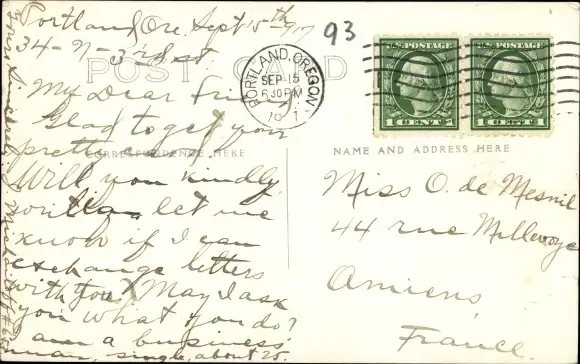 Portland, Ore, Sept 15th
34-N-3rd st
93
POST CARD
PORTLAND, OREGON
SEP 15
6 30 PM
U.S. POSTAGE
1 CENT 1
U.S. POSTAGE
1 CENT 1
My Dear Friend,
Glad to get you
pretty
CORRESPONDENCE HERE
Will you kindly
let me
know if I can
exchange letters
with you? May I ask
you what you do?
am a business
man, single, about 25.
Yours Sincerely
NAME AND ADDRESS HERE
Miss O. de Mesnil
44 rue Millevoye
Amiens,
France.